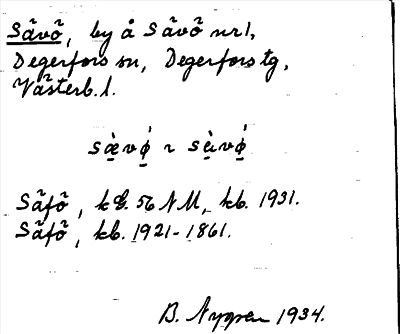 Sävö, by å Sävö nr 1,
Degerfors sn, Degerfors tg,
Västerb. l.
sæ̀vǿ ~ sàvǿ
Säfö, kE. 56 NM, kb. 1931.
Säfö, kb. 1921-1861.
B. Nygren 1934.